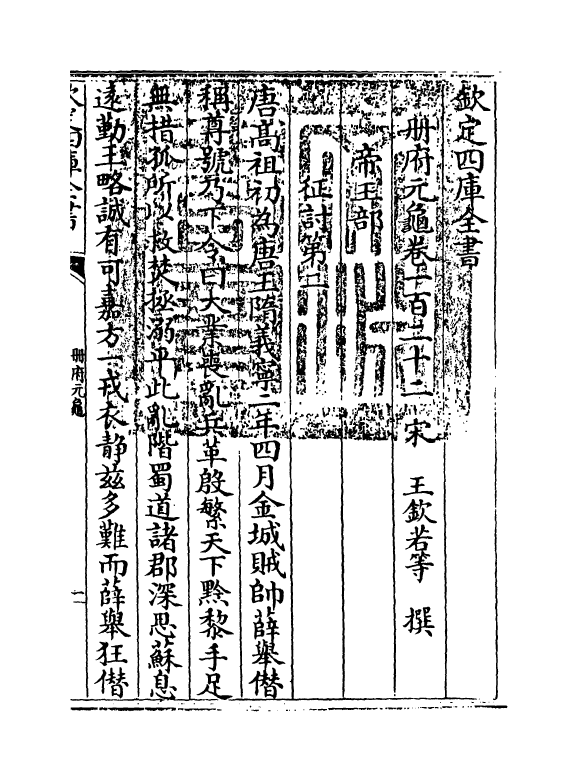 欽定四庫全書
冊府元龜卷一百二十二　宋　王欽若等　撰
帝王部
征討第二
唐髙祖初為唐王隋義寧二年四月金城賊帥薛舉僣
稱尊號乃下令曰大業喪亂兵革殷繁天下黔黎手足
無措孤所以救焚拯溺平此亂階蜀道諸郡深思蘇息
遠勤王略誠有可嘉方一戎衣静兹多難而薛舉狂僣
冊府元龜